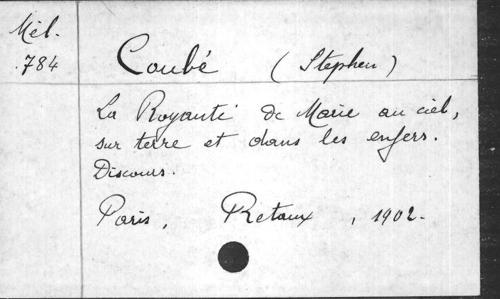 Mél.
784
Coubé (Stephen)
La Royauté de Marie au ciel,
sur terre et dans les enfers.
Discours.
Paris, Retaux, 1902.